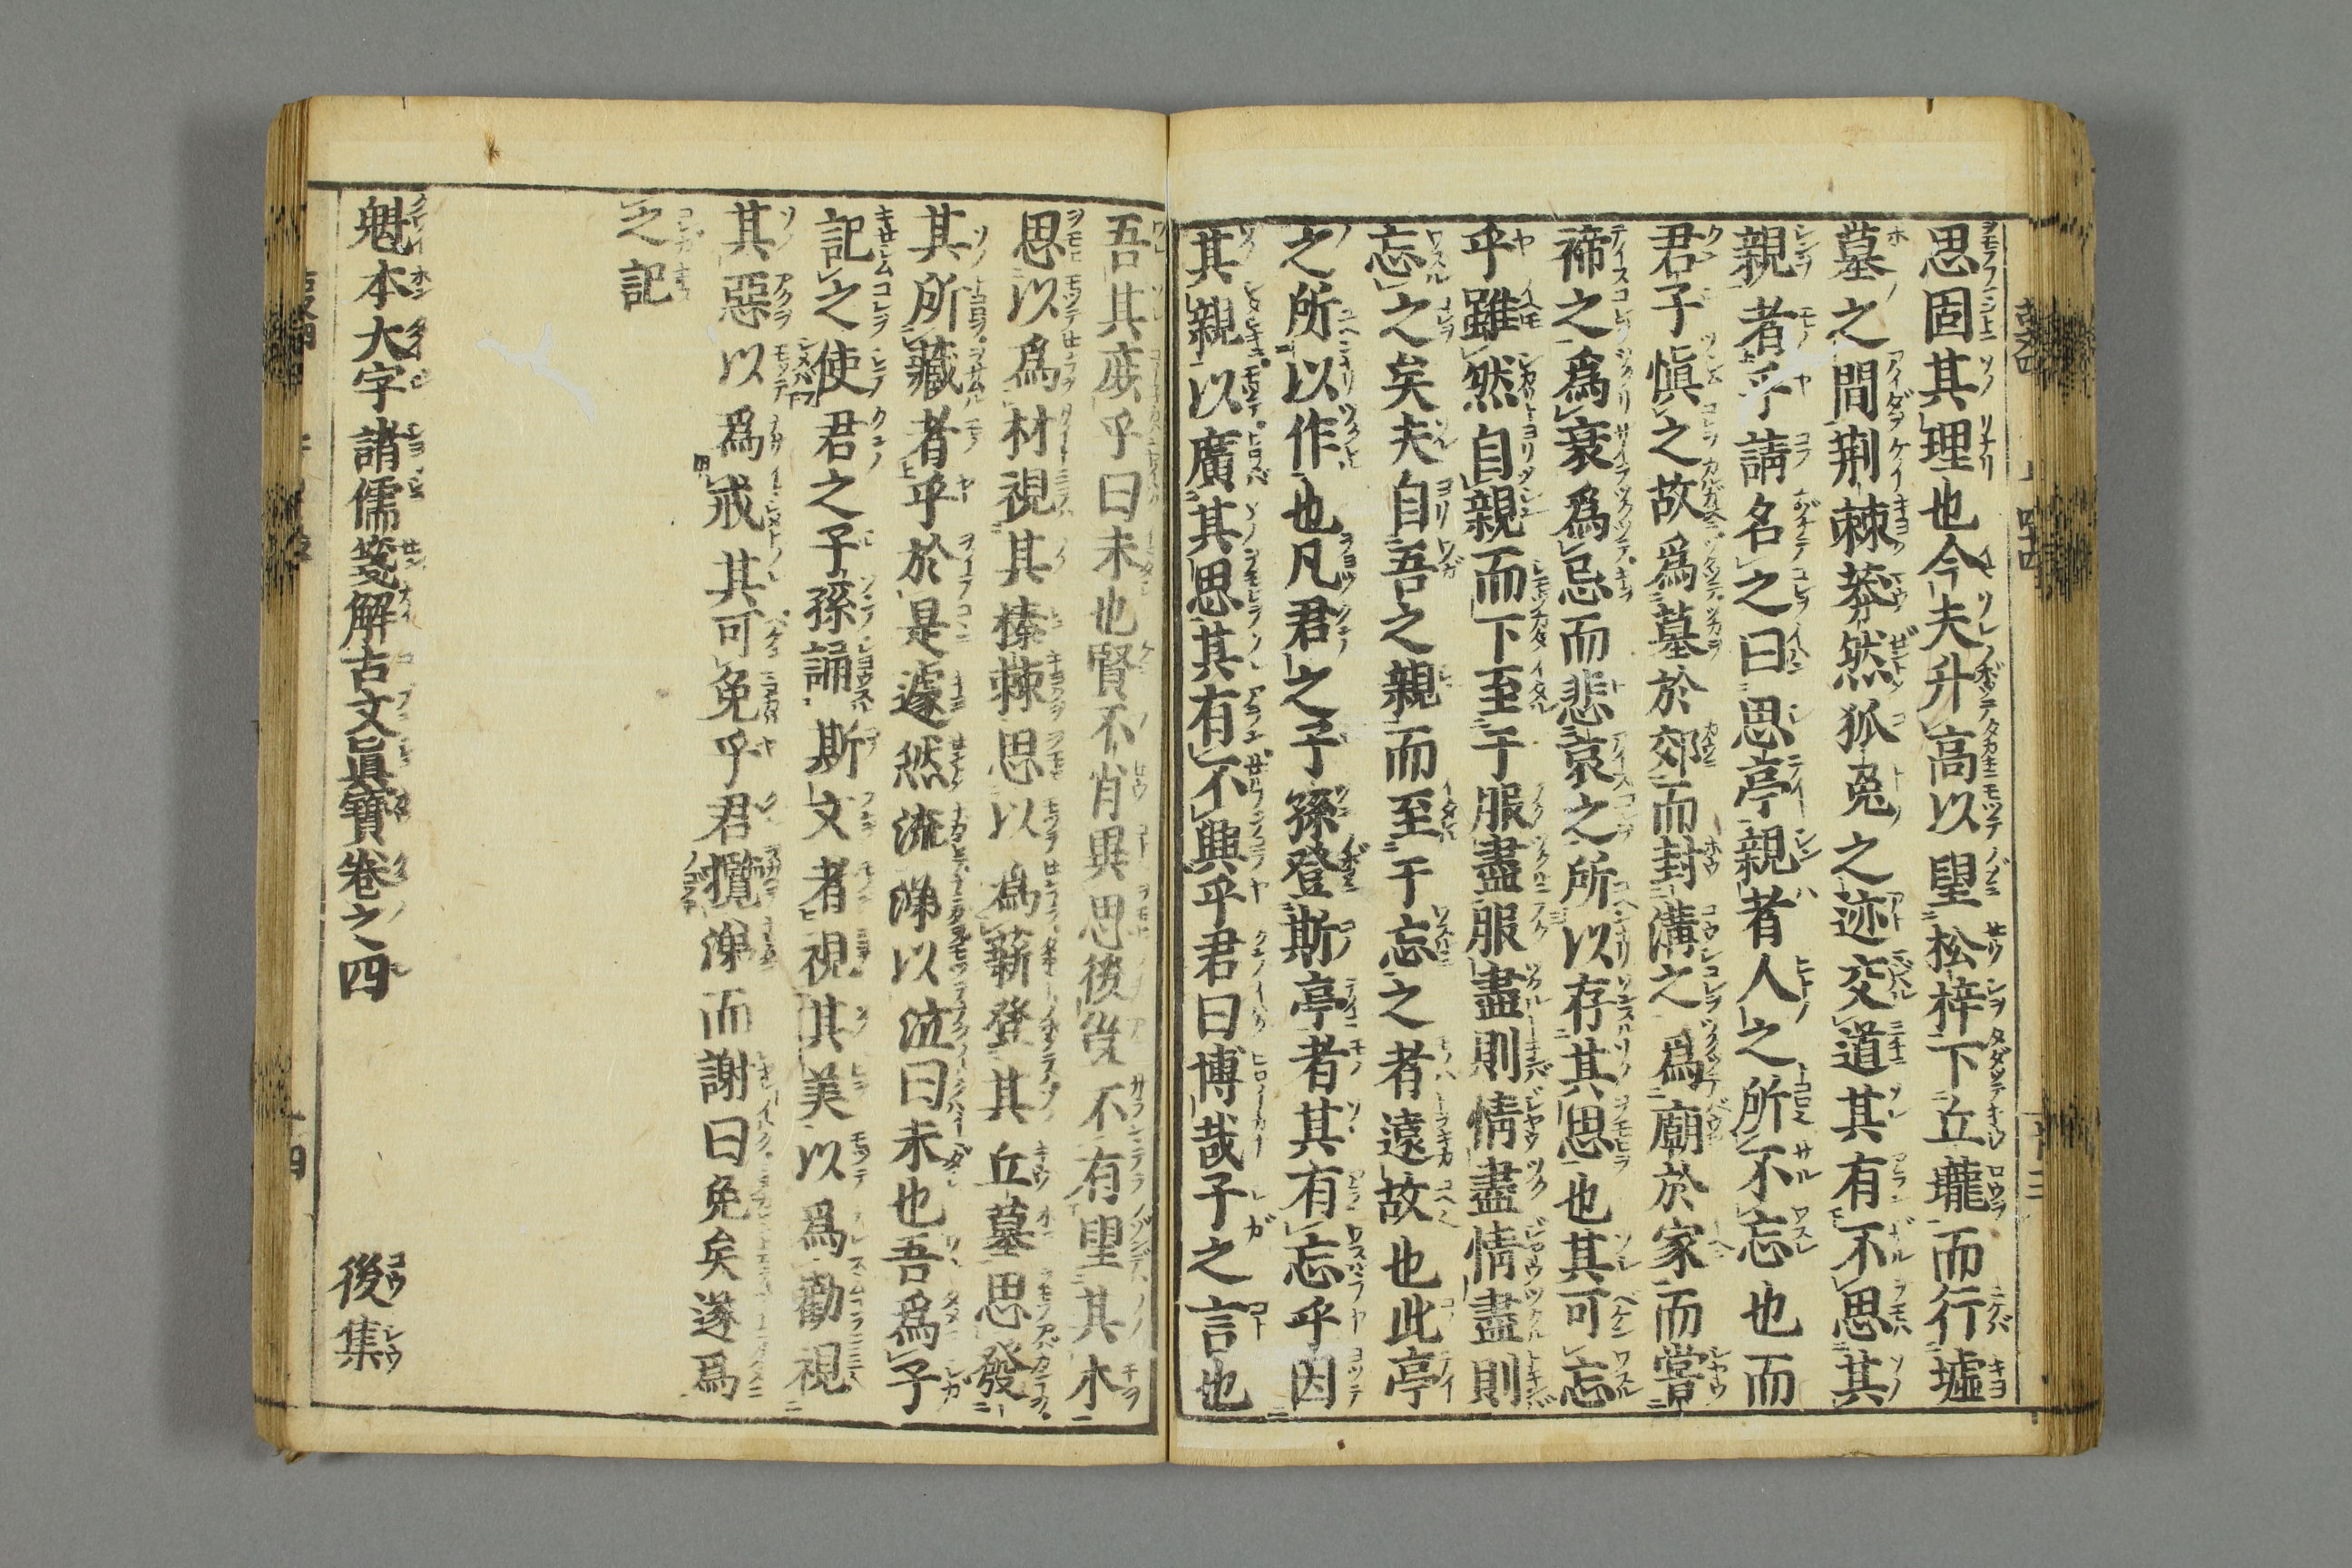 思固其理也今夫升高以望松梓下丘壠而行墟
墓之間荆棘莽然狐兔之迹交道其有不思其
親者乎請名之曰思亭親者人之所不忘也而
君子慎之故爲墓於郊而封溝之爲廟於家而嘗
禘之爲衰爲忌而悲哀之所以存其思也其可忘
乎雖然自親而下至于服盡服盡則情盡情盡則
忘之矣夫自吾之親而至于忘之者遠故也此亭
之所以作也凡君之子孫登斯亭者其有忘乎因
其親以廣其思其有不興乎君曰博哉子之言也
吾其庶乎曰未也賢不肖異思後豈不有望其木
思以爲材視其榛棘思以爲薪登其丘墓思發
其所藏者乎於是遽然流涕以泣曰未也吾爲子
記之使君之子孫誦斯文者視其美以爲勸視
其惡以爲戒其可免乎君攬涕而謝曰免矣遂爲
之記
魁本大字諸儒箋解古文眞寶卷之四 後集